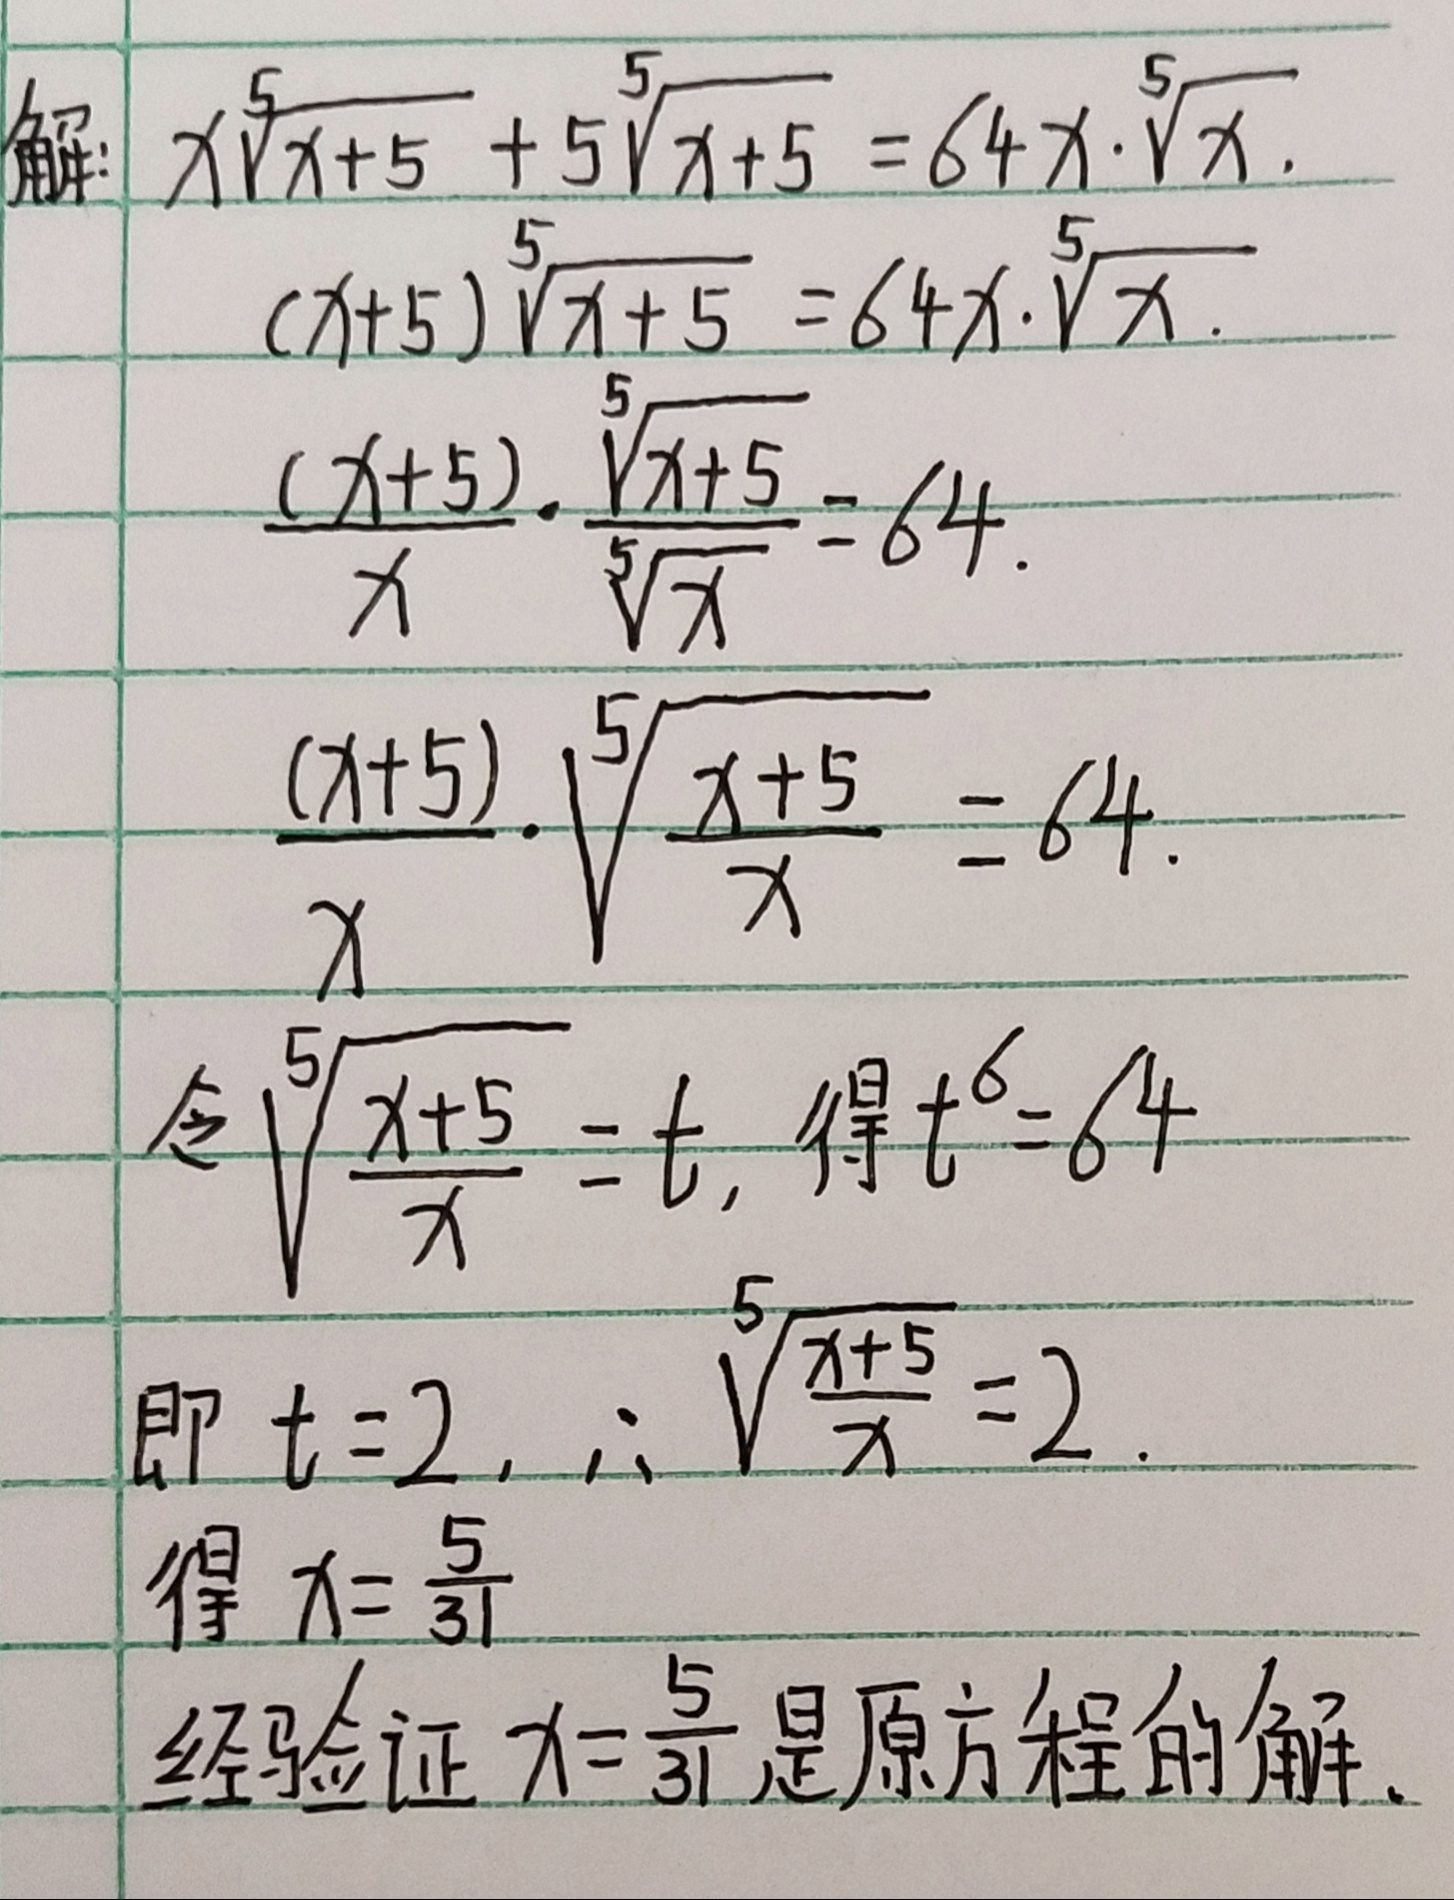 解: x⁵√(x+5) + 5⁵√(x+5) = 64x·⁵√x.
(x+5)⁵√(x+5) = 64x·⁵√x.
(x+5)/x · ⁵√(x+5)/⁵√x = 64.
(x+5)/x · ⁵√((x+5)/x) = 64.
令 ⁵√((x+5)/x) = t, 得 t⁶=64
即 t=2, ∴ ⁵√((x+5)/x) = 2.
得 x=5/31
经验证 x=5/31 是原方程的解.